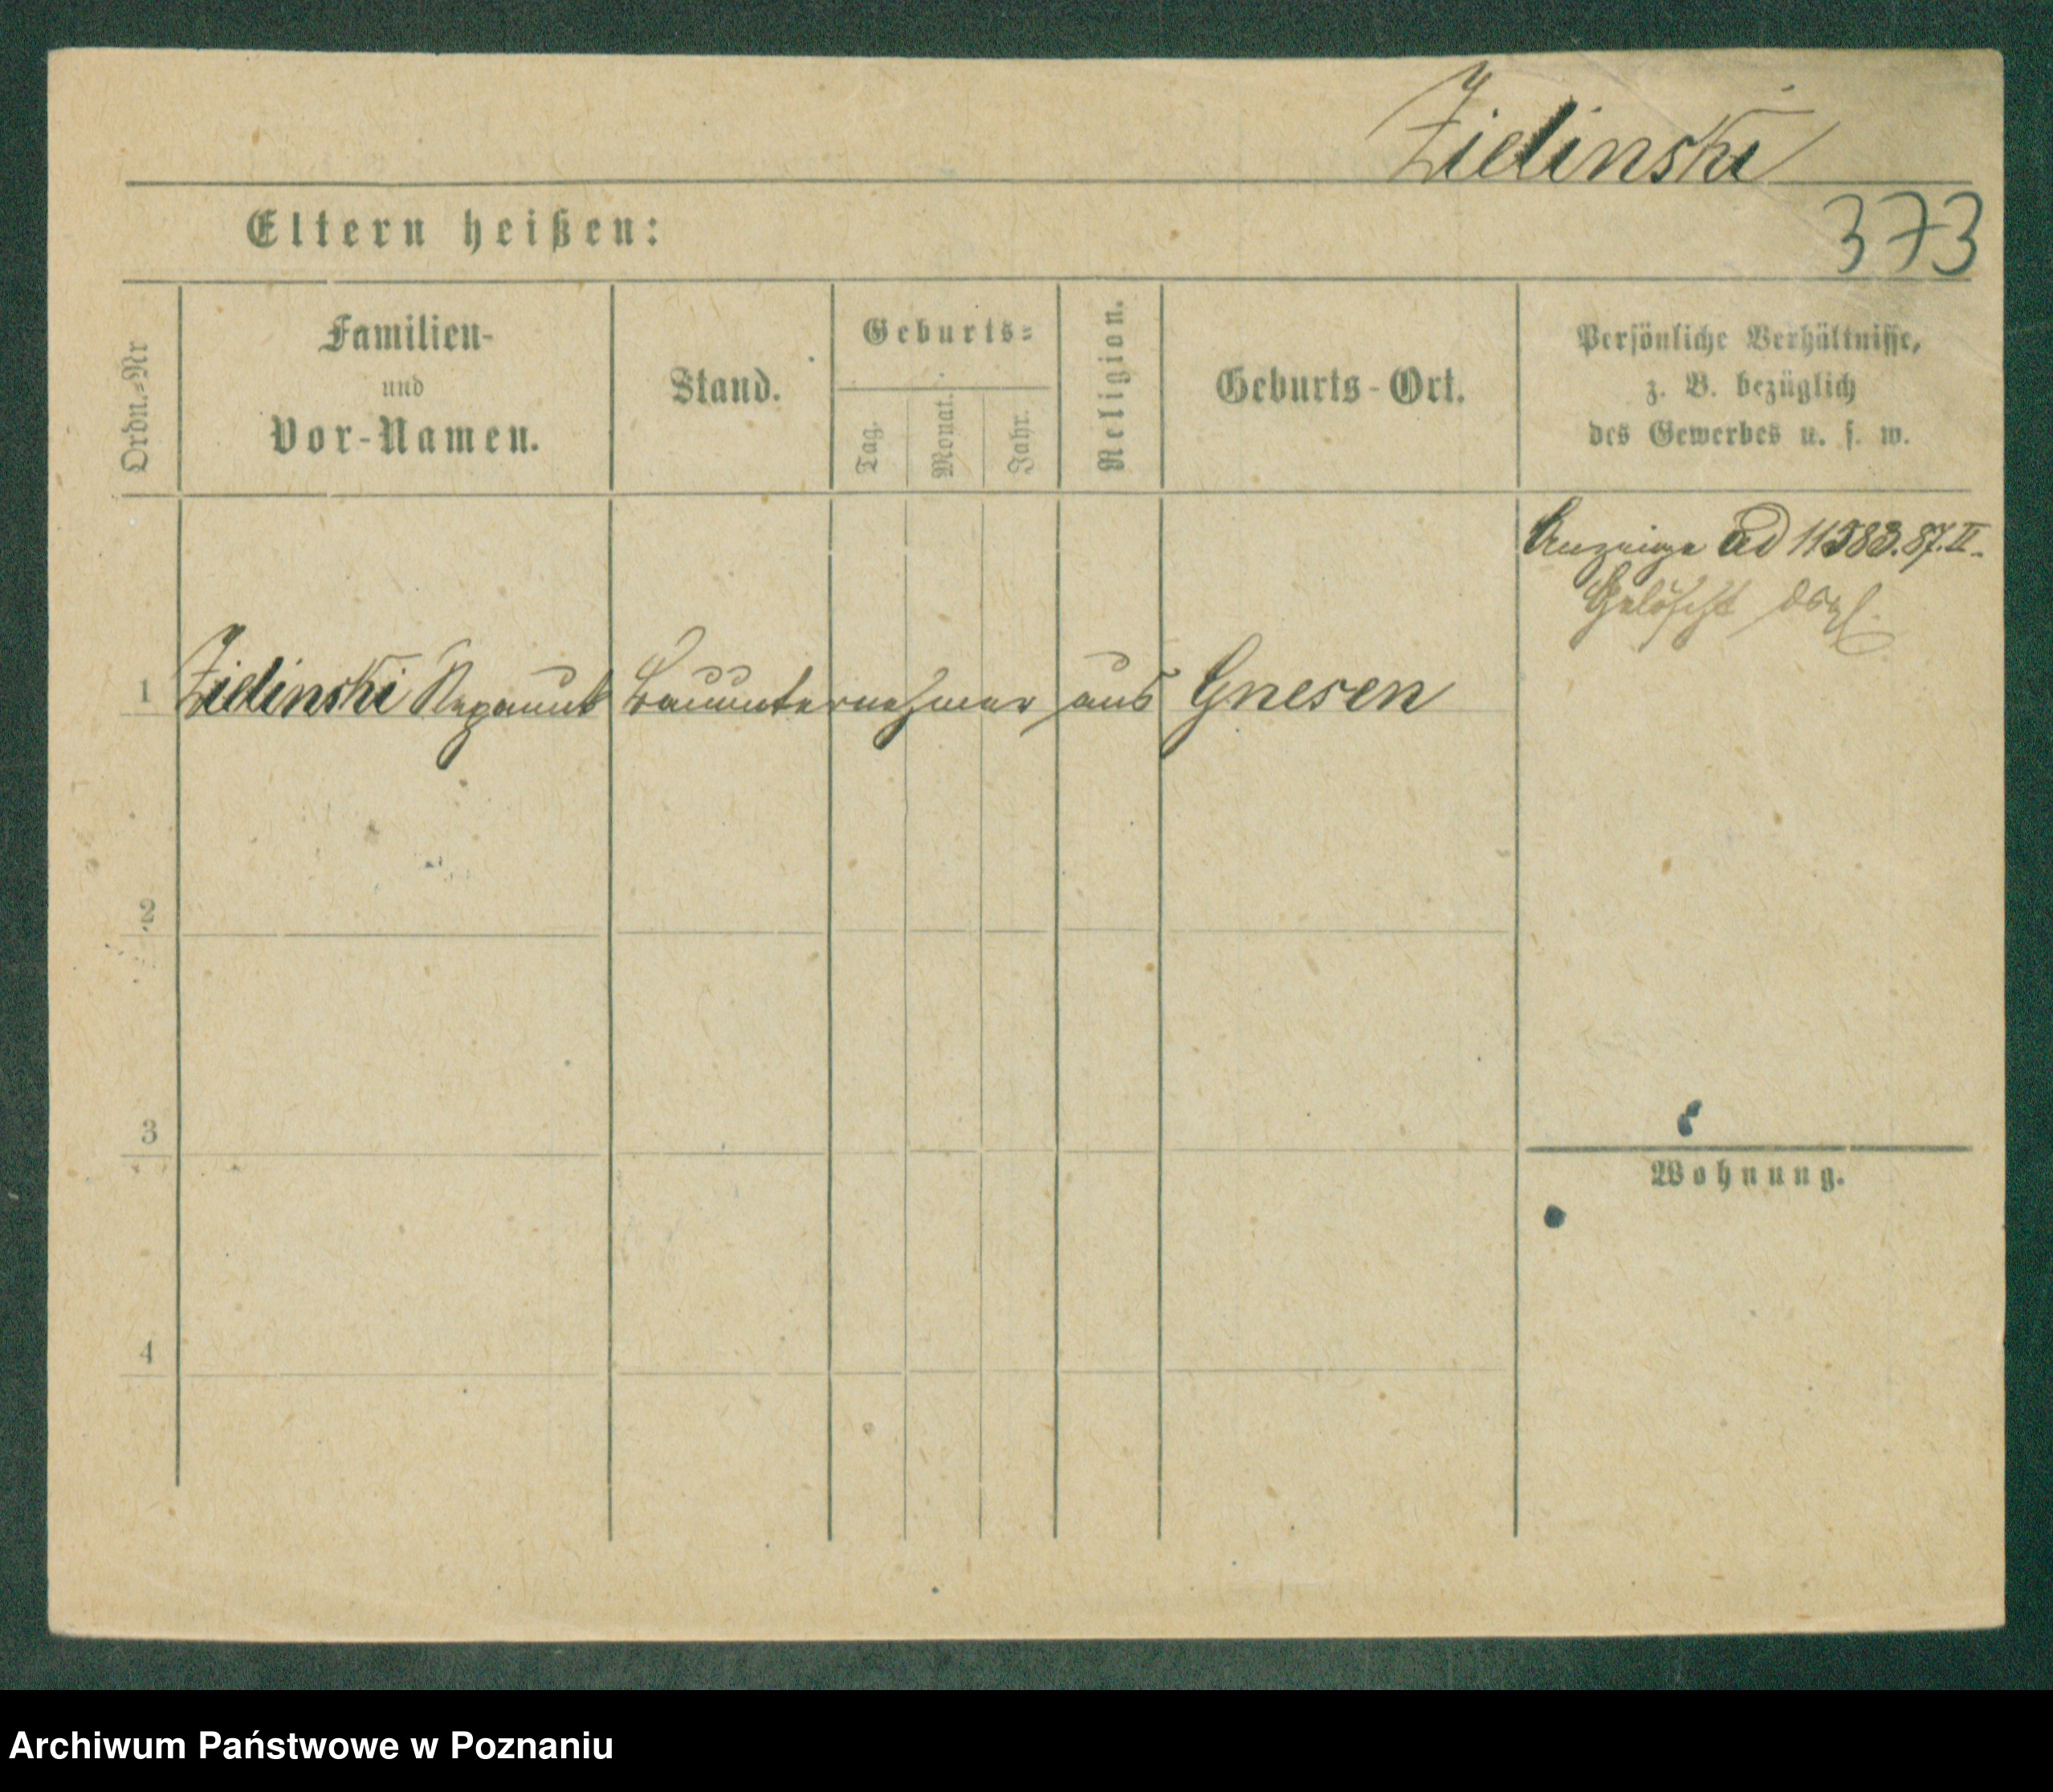 Zielinski
373
Eltern heißen:
Ordn.-Nr
Familien-
und
Vor-Namen.
Stand.
Geburts-
Tag.
Monat.
Jahr.
Religion.
Geburts-Ort.
Persönliche Verhältnisse,
z. B. bezüglich
des Gewerbes u. s. w.
Anzeige ad 11383.87.II.
Gelöscht
1 Zielinski Bauunternehmer aus Gnesen
2
3
Wohnung.
4
Archiwum Państwowe w Poznaniu